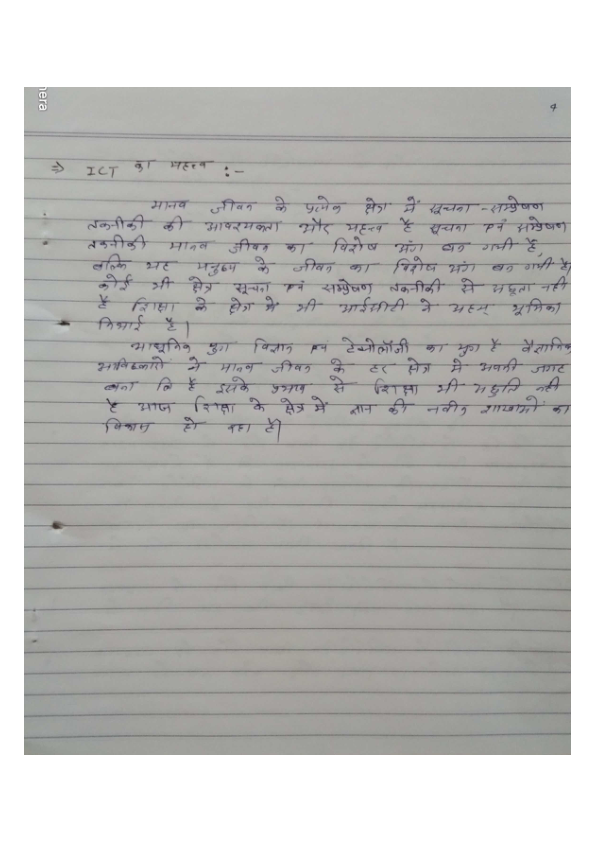 mera
4
⇒ ICT का महत्व :-
मानव जीवन के प्रत्येक क्षेत्र में सूचना - सम्प्रेषण
तकनीकी की आवश्यकता और महत्व है सूचना एवं सम्प्रेषण
तकनीकी मानव जीवन का विशेष अंग बन गयी है,
बल्कि यह मनुष्य के जीवन का विशेष अंग बन गयी है।
कोई भी क्षेत्र सूचना एवं सम्प्रेषण तकनीकी से अछूता नही
है शिक्षा के क्षेत्र मे भी आईसीटी ने महत् भूमिका
निभाई है।
आधुनिक युग विज्ञान एवं टेक्नोलॉजी का युग है वैज्ञानिक
अविष्कारों ने मानव जीवन के हर क्षेत्र मे अपनी जगह
बना लि है इसके प्रभाव से शिक्षा भी अछुति नही
है आज शिक्षा के क्षेत्र में ज्ञान की नवीन शाखाओं का
विकास हो रहा है।